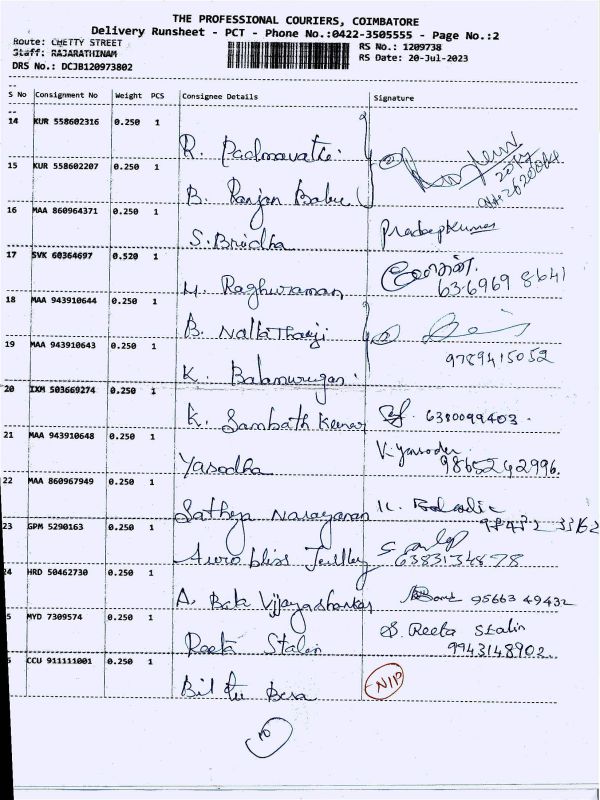 THE PROFESSIONAL COURIERS, COIMBATORE
Delivery Runsheet - PCT - Phone No.:0422-3505555 - Page No.:2
Route: CHETTY STREET
RS No.: 1209738
Staff: RAJARATHINAM
RS Date: 20-Jul-2023
DRS No.: DCJB120973802
S No Consignment No Weight PCS Consignee Details Signature
14 KUR 558602316 0.250 1
R. Padmavathi
15 KUR 558602207 0.250 1
B. Ranjan Babu
16 MAA 860964371 0.250 1
S. Brindha Pradeepkumar
17 SVK 60364697 0.520 1
M. Raghuraman
63-6969 8641
18 MAA 943910644 0.250 1
B. Nallathambi
19 MAA 943910643 0.250 1
9789415052
K. Balamurugan
20 IXM 503669274 0.250 1
K. Sambath Kumar 6380099403.
21 MAA 943910648 0.250 1
Yasodha 9865242996.
22 MAA 860967949 0.250 1
Sathya Narayanan
23 GPM 5290163 0.250 1
6383134878
24 HRD 50462730 0.250 1
A. Bala Vijayashankar 95663 49432
5 MYD 7309574 0.250 1
Reeta Stalin S. Reeta Stalin
9943148902.
6 CCU 911111001 0.250 1
N/P